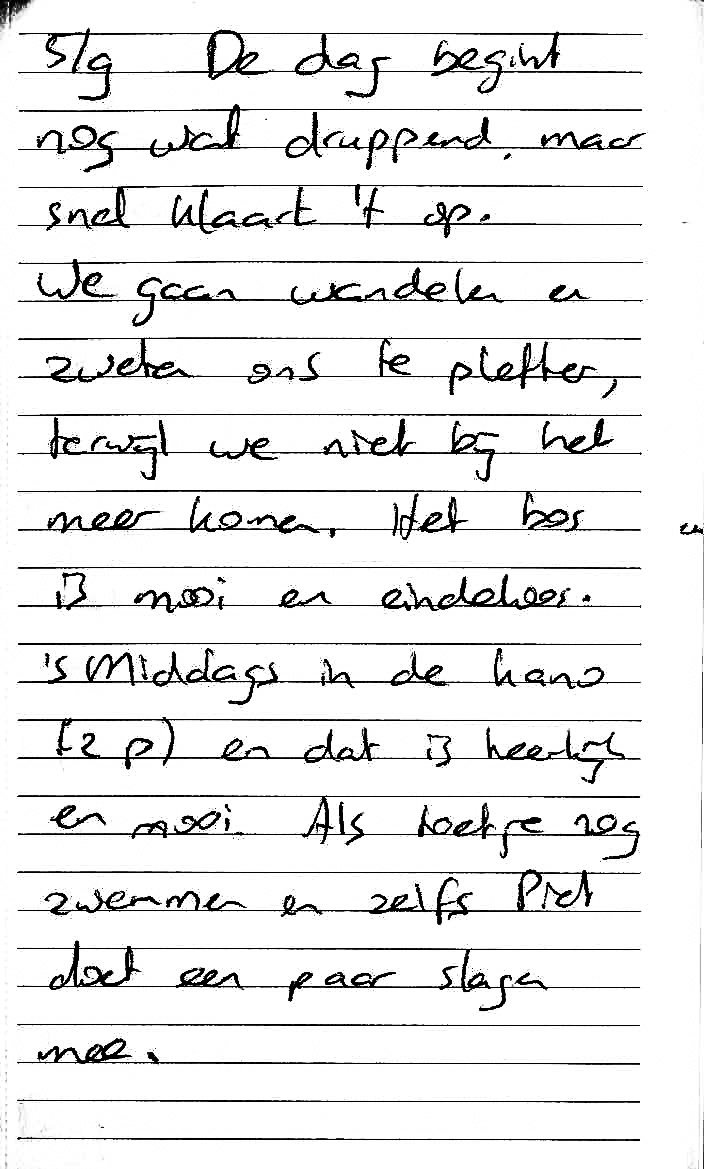 5/9 De dag begint
nog wat druppend, maar
snel klaart 't op.
We gaan wandelen en
zweten ons te pletter,
terwijl we niet bij het
meer komen. Het bos
is mooi en eindeloos.
's Middags in de kano
(2 p) en dat is heerlijk
en mooi. Als toetje nog
zwemmen en zelfs Piet
doet een paar slagen
mee.